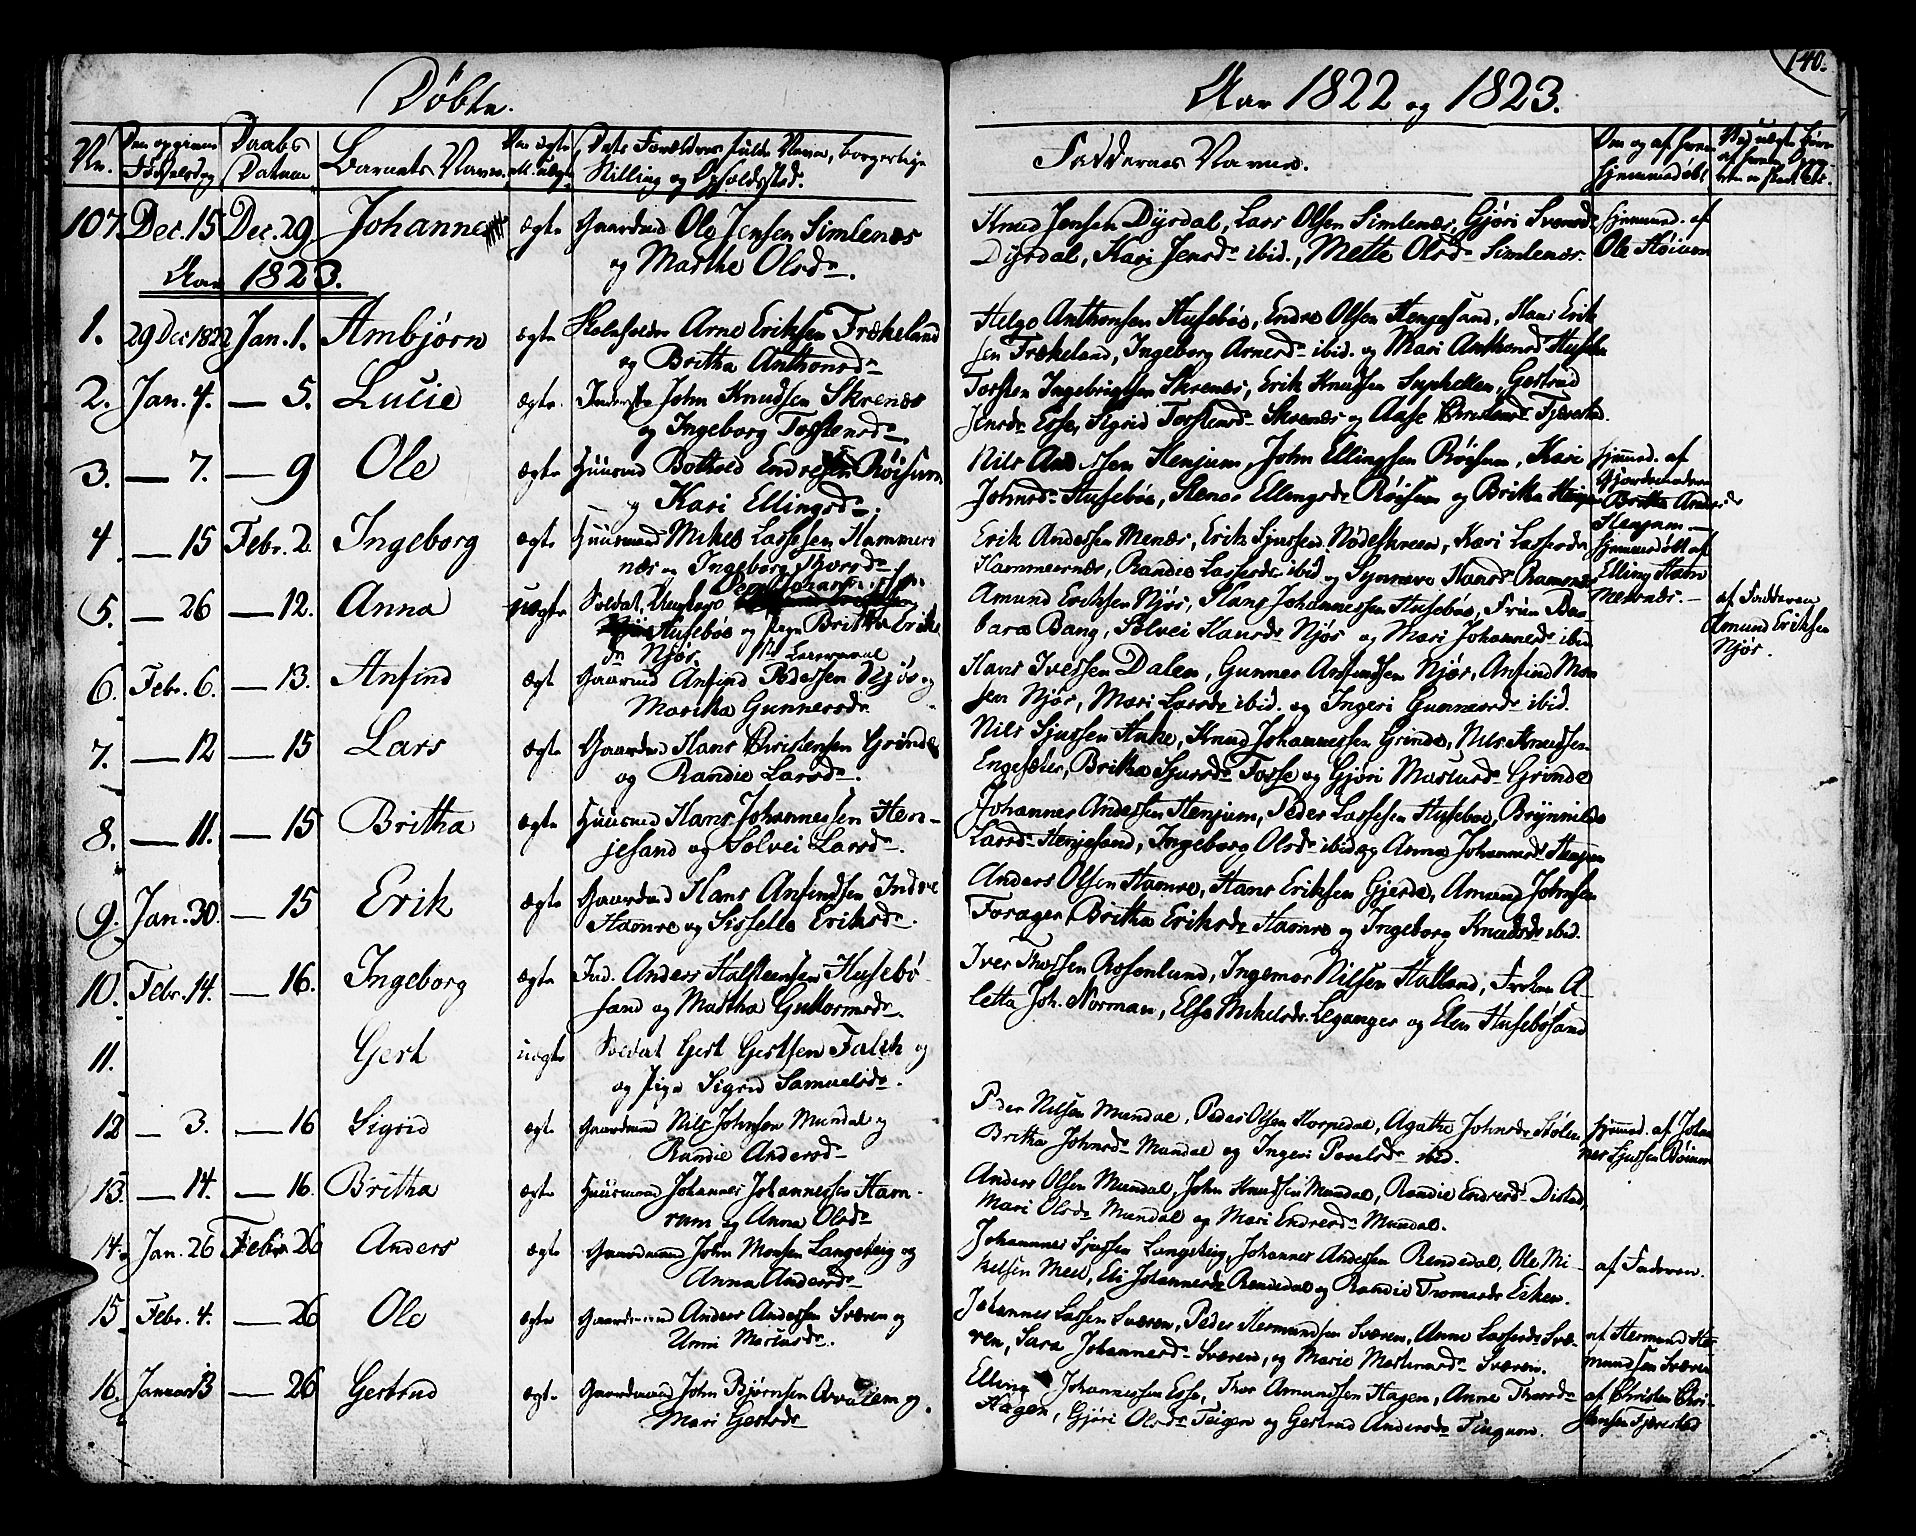 Døbte.
Aar 1822 og 1823.
140.
No.
Den opgivne Fødselsdag
Daabs Datum
Barnets Navn.
Om ægte ell. uægte
Dets Forældres fulde Navne, borgerlige Stilling og Opholdssted.
Faddernes Navne.
Om og af hvem hjemmedøbt
107 Dec. 15 Dec. 29 Johanne ægte Gaardmd Ole Jensen Simlenæs
og Marthe Olsdr.
Knud Jensen Dyrdal, Lars Olsen Simlenæs, Gjøri Svensdr
Dyrdal, Kari Jensdr ibid., Mette Olsdr Simlenæs.
hjemmed. af
Ole Høiven
Aar 1823.
1. 29 Dec 1822 Jan. 1. Ambjørn ægte Skoleholder Arne Eriksen Frækeland
og Britha Anthonsdr
Helge Anthonsen Husebøe, Endre Olsen Henjesand, Hans Erik
sen Frækeland, Ingeborg Arnesdr ibid. og Mari Anthonsd Husebø
2. Jan. 4. — 5. Lucie ægte. Inderste John Knudsen Skrenæs
og Ingeborg Torstensdr.
Torsten Ingebrigtsen Skrenæs, Erik Knudsen Suphellen, Gertrud
Jensdr Esse, Sigrid Torstensdr Skrenæs og Aase Christensdr Tjærestad.
3. — 7. — 9 Ole ægte Huusmd Bothold Endresen Røisum
og Kari Ellingsdr.
Nils Andersen Henjum, John Ellingsen Røisum, Kari
Johnsdr Husebøe, Ellingsdr Røisum og Britha
hjemmd. af
Gjordemoderen
Britha Andersdr
Henjum.—
4. — 15 Febr. 2. Ingeborg ægte Huusmand Mikel Lassesen Hammers
næs og Ingeborg Thorsdr
Erik Andersen Menæs, Erik Sjursen Nødeskreen, Kari Lassesdr
Hammersnæs, Randie Lassesdr ibid og Synneve Hansdr Ramsnæs
hjemmedøbt af
Elling Ham
mersnæs.—
5. — 26 — 12. Anna uægte Soldat, Ungkarl Johannessen
Husebøe og Pige Britha Eriks
dr Njøs.
Amund Eriksen Njøs, Hans Johannessen Husebøe, Frue Bar
bara Bang, Sølvei Hansdr Njøs og Mari Johannesdr ibid
af Fadderen
Amund Eriksen
Njøs.
6. Febr. 6. — 13. Anfind ægt Gaardmd Anfind Pedersen Njøs og
Maritha Gunnersdr.
Hans Iversen Dalen, Gunner Amundsen Njøs, Anfind Mon
sen Njøs, Mari Larsdr ibid. og Ingeri Gunnersdr ibid.
7. — 12 — 15 Lars ægte Gaardmd Hans Christensen Grinde
og Randie Larsdr.
Nils Sjursen Hake, Knud Johannessen Grinde, Nils Knudsen
Engesæter, Britha Sjursdr Fosse og Gjøri Mariusdr Grinde
8. — 11. — 15 Britha ægte Huusmd Hans Johannessen Hen-
jesand og Sølvei Larsdr.
Johannes Andersen Henjum, Peder Lassesen Husebøe, Brynnilde
Larsdr Henjesand, Ingeborg Olsdr ibid og Anna Johannesdr Henjum
9. Jan. 30. — 15 Erik ægte Gaardmd Hans Anfindsen Indre
Hamre og Sisselle Eriksdr.
Anders Olsen Hamre, Hans Eriksen Gjerde, Amund Johnsen
Farager, Britha Eriksdr Hamre og Ingeborg Knudsdr ibid.
10. Febr. 14. — 16. Ingeborg ægte Ind. Anders Halsteensen Husebø-
sand og Martha Guttormsdr.
Iver Thorsen Rosenlund, Ingemor Nilsen Hatland, Frøken A-
letta Joh. Norman, Else Mikelsdr. Leganger og Elen Husebøsand
11. Gert uægte Soldat Gert Gertsen Falch og
og Pige Sigrid Samuelsdr.
12 — 3. — 16 Sigrid ægt Gaardmand Nils Johnsen Mundal og
Randie Andersdr
Peder Nilsen Mundal, Peder Olsen Horpedal, Agathe Johnsdr Stølen,
Britha Johnsdr Mundal og Ingeri Povelsdr ibid.
hjemmd. af Johan
nes Sjursen Bøium
13. — 14. — 16. Britha ægte Huusmand Johannes Johannessen Ham-
rum og Anna Olsdr
Anders Olsen Mundal, John Knudsen Mundal, Randie Endresdr Distad,
Mari Olsdr Mundal og Mari Endresdr Mundal.
14. Jan. 26 Febr. 26 Anders ægte Gaardmand John Monsen Langeteig og
Anna Andersdr
Johannes Sjursen Langeteig, Johannes Andersen Rendedal, Ole Mi-
kelsen Mell, Eli Johannesdr Rendedal og Randie Tromarsdr Esken.
af Faderen.
15 Febr. 4. — 26 Ole ægte Gaardmand Anders Andersen Sværen og
Unni Mariusdr.
Johannes Lassen Sværen, Peder Hermundsen Sværen, Anne Lassesdr Svæ-
ren, Sara Johannesdr Sværen, og Marie Mortensdr Sværen.
af Hermund Her
mundsen Sværen
16. Januar 13 — 26 Gertrud ægte Gaardmand John Bjørnsen Arvalem og
Mari Gertsdr
Elling Johannessen Esse, Thor Amundsen Hagen, Anne Thorsdr
Hagen, Gjøri Olsdr Teigen og Gertrud Andersdr Tingum.
af Christen Chri-
stensen Tjærestad